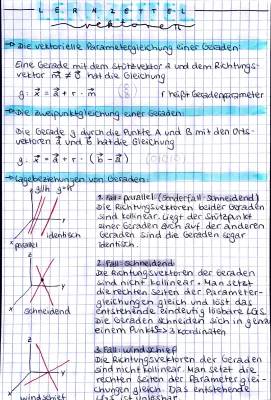 LERNZETTEL
vektoren
Die vektorielle Parametergleichung einer Geraden:
Eine Gerade mit dem Stützvektor a⃗ und dem Richtungs-
vektor m⃗ ≠ o⃗ hat die Gleichung
g: x⃗ = a⃗ + r · m⃗ r heißt Geradenparameter
Die Zweipunktgleichung einer Geraden:
Die Gerade g durch die Punkte A und B mit den Orts-
vektoren a⃗ und b⃗ hat die Gleichung
g: x⃗ = a⃗ + r · (b⃗ - a⃗)
Lagebeziehungen von Geraden:
g||h g=h
z
y
x
parallel
identisch
1. Fall: parallel (Sonderfall:
Die Richtungsvektoren beider Geraden
sind kollinear. Liegt der Stützpunkt
einer Geraden auch auf der anderen
Geraden sind die Geraden sogar
identisch.
z
y
x
schneidend
2. Fall: schneidend
Die Richtungsvektoren der Geraden
sind nicht kollinear. Man setzt
die rechten Seiten der Parameter-
gleichungen gleich und löst das
entstehende eindeutig lösbare LGS.
Die Geraden schneiden sich in genau
einem Punkt S => 3 Koordinaten
z
y
x
windschief
3. Fall: windschief
Die Richtungsvektoren der Geraden
sind nicht kollinear. Man setzt die
rechten Seiten der Parameterglei-
chungen gleich. Das entstehende
LGS ist unlösbar.